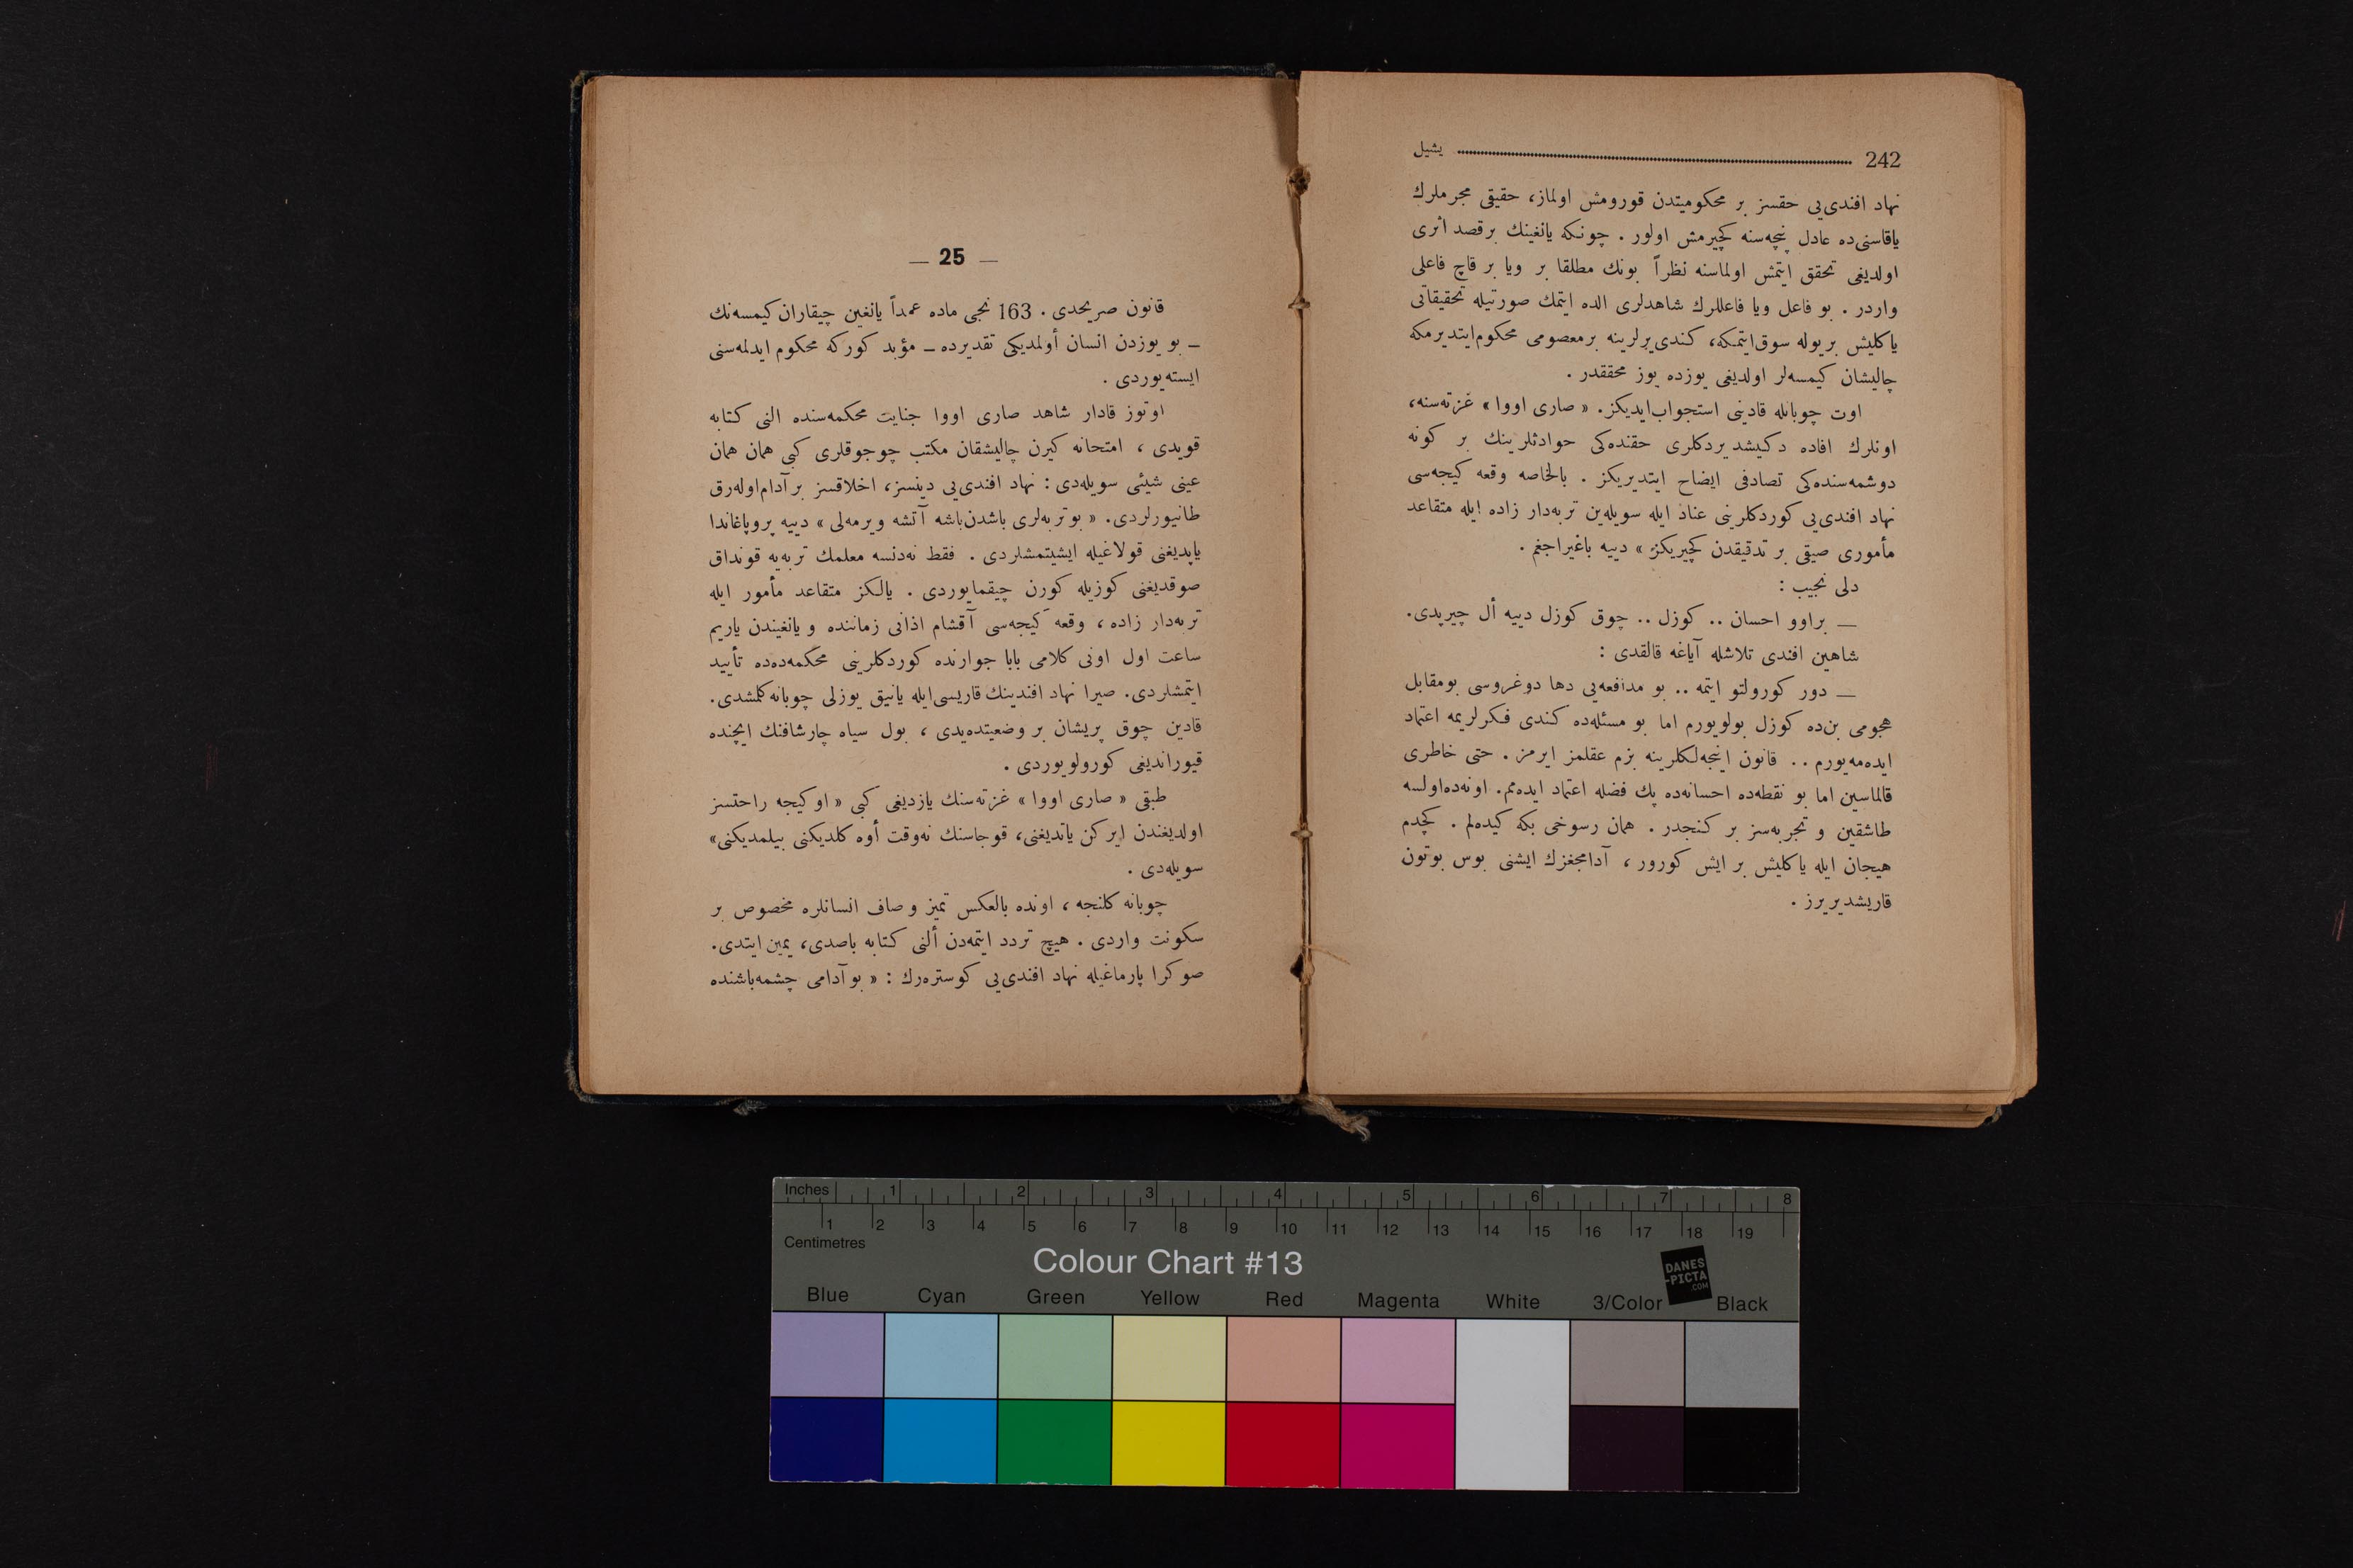 242 یشیل
نهاد افندی‌یی حقسز بر محکومیتدن قورومش اولماز، حقیقی مجرملرك
یاقاسنی‌ده عادل پنچه‌سنه کچیرمش اولور . چونکه یانغینك برقصد اثری
اولدیغی تحقق ایتمش اولماسنه نظراً بونك مطلقا بر ویا بر قاچ فاعلی
واردر . بو فاعل ویا فاعللرك شاهدلری الده ایتمك صورتیله تحقیقاتی
یاکلیش بریوله سوق‌ایتمکه، کندی‌یرلرینه برمعصومی محکوم‌ایتدیرمکه
چالیشان کیمسه‌لر اولدیغی یوزده یوز محققدر .
اوت چوبانله قادینی استجواب‌ایدیکز. « صاری اووا » غزته‌سنه،
اونلرك افاده دکیشدیردکلری حقنده‌کی حوادثلرینك بر کونه
دوشمه‌سنده‌کی تصادفی ایضاح ایتدیریکز . بالخاصه وقعه کیجه‌سی
نهاد افندی‌یی کوردکلرینی عناد ایله سویله‌ین تربه‌دار زاده ایله متقاعد
مأموری صیقی بر تدقیقدن کچیریکز » دییه باغیراجغم .
دلی نجیب :
— براوو احسان .. کوزل .. چوق کوزل دییه أل چیرپدی.
شاهین افندی تلاشله آیاغه قالقدی :
— دور کورولتو ایتمه .. بو مدافعه‌یی دها دوغروسی بومقابل
هجومی بن‌ده کوزل بولویورم اما بو مسئله‌ده کندی فکرلریمه اعتماد
ایده‌مه‌یورم .. قانون اینجه‌لکلرینه بزم عقلمز ایرمز . حتی خاطری
قالماسین اما بو نقطه‌ده احسانه‌ده پك فضله اعتماد ایده‌مم. اونه‌ده‌اولسه
طاشقین و تجربه‌سز بر کنجدر . همان رسوخی بکه کیده‌لم . کچدم
هیجان ایله یاکلیش بر ایش کورور ، آدامجغزك ایشنی بوس بوتون
قاریشدیریرز .
— 25 —
قانون صریحدی . 163 نجی ماده عمداً یانغین چیقاران کیمسه‌نك
– بو یوزدن انسان أولمدیکی تقدیرده – مؤبد کورکه محکوم ایدلمه‌سنی
ایسته‌یوردی .
اوتوز قادار شاهد صاری اووا جنایت محکمه‌سنده النی کتابه
قویدی ، امتحانه کیرن چالیشقان مکتب چوجوقلری کبی همان همان
عینی شیئی سویله‌دی : نهاد افندی‌یی دینسز، اخلاقسز برآدام‌اوله‌رق
طانیورلردی. « بوتربه‌لری باشدن‌باشه آتشه ویرمه‌لی » دییه پروپاغاندا
یاپدیغنی قولاغیله ایشیتمشلردی . فقط نه‌دنسه معلمك تربه‌یه قونداق
صوقدیغنی کوزیله کورن چیقمایوردی . یالکز متقاعد مأمور ایله
تربه‌دار زاده ، وقعه کیجه‌سی آقشام اذانی زماننده و یانغیندن یاریم
ساعت اول اونی کلامی بابا جوارنده کوردکلرینی محکمه‌ده‌ده تأیید
ایتمشلردی. صیرا نهاد افندینك قاریسی‌ایله یانیق یوزلی چوبانه کلمشدی.
قادین چوق پریشان بر وضعیتده‌یدی ، بول سیاه چارشافنك ایچنده
قیوراندیغی کورولویوردی .
طبقی « صاری اووا » غزته‌سنك یازدیغی کبی « اوکیجه راحتسز
اولدیغندن ایرکن یاتدیغنی، قوجاسنك نه‌وقت أوه کلدیکنی بیلمدیکنی»
سویله‌دی .
چوبانه کلنجه ، اونده بالعکس تمیز و صاف انسانلره مخصوص بر
سکونت واردی . هیچ تردد ایتمه‌دن ألنی کتابه باصدی، یمین ایتدی.
صوکرا پارماغیله نهاد افندی‌یی کوستره‌رك : « بو آدامی چشمه‌باشنده
Inches 1 2 3 4 5 6 7 8
1 2 3 4 5 6 7 8 9 10 11 12 13 14 15 16 17 18 19
Centimetres
Colour Chart #13
DANES
-PICTA
.COM
Blue Cyan Green Yellow Red Magenta White 3/Color Black